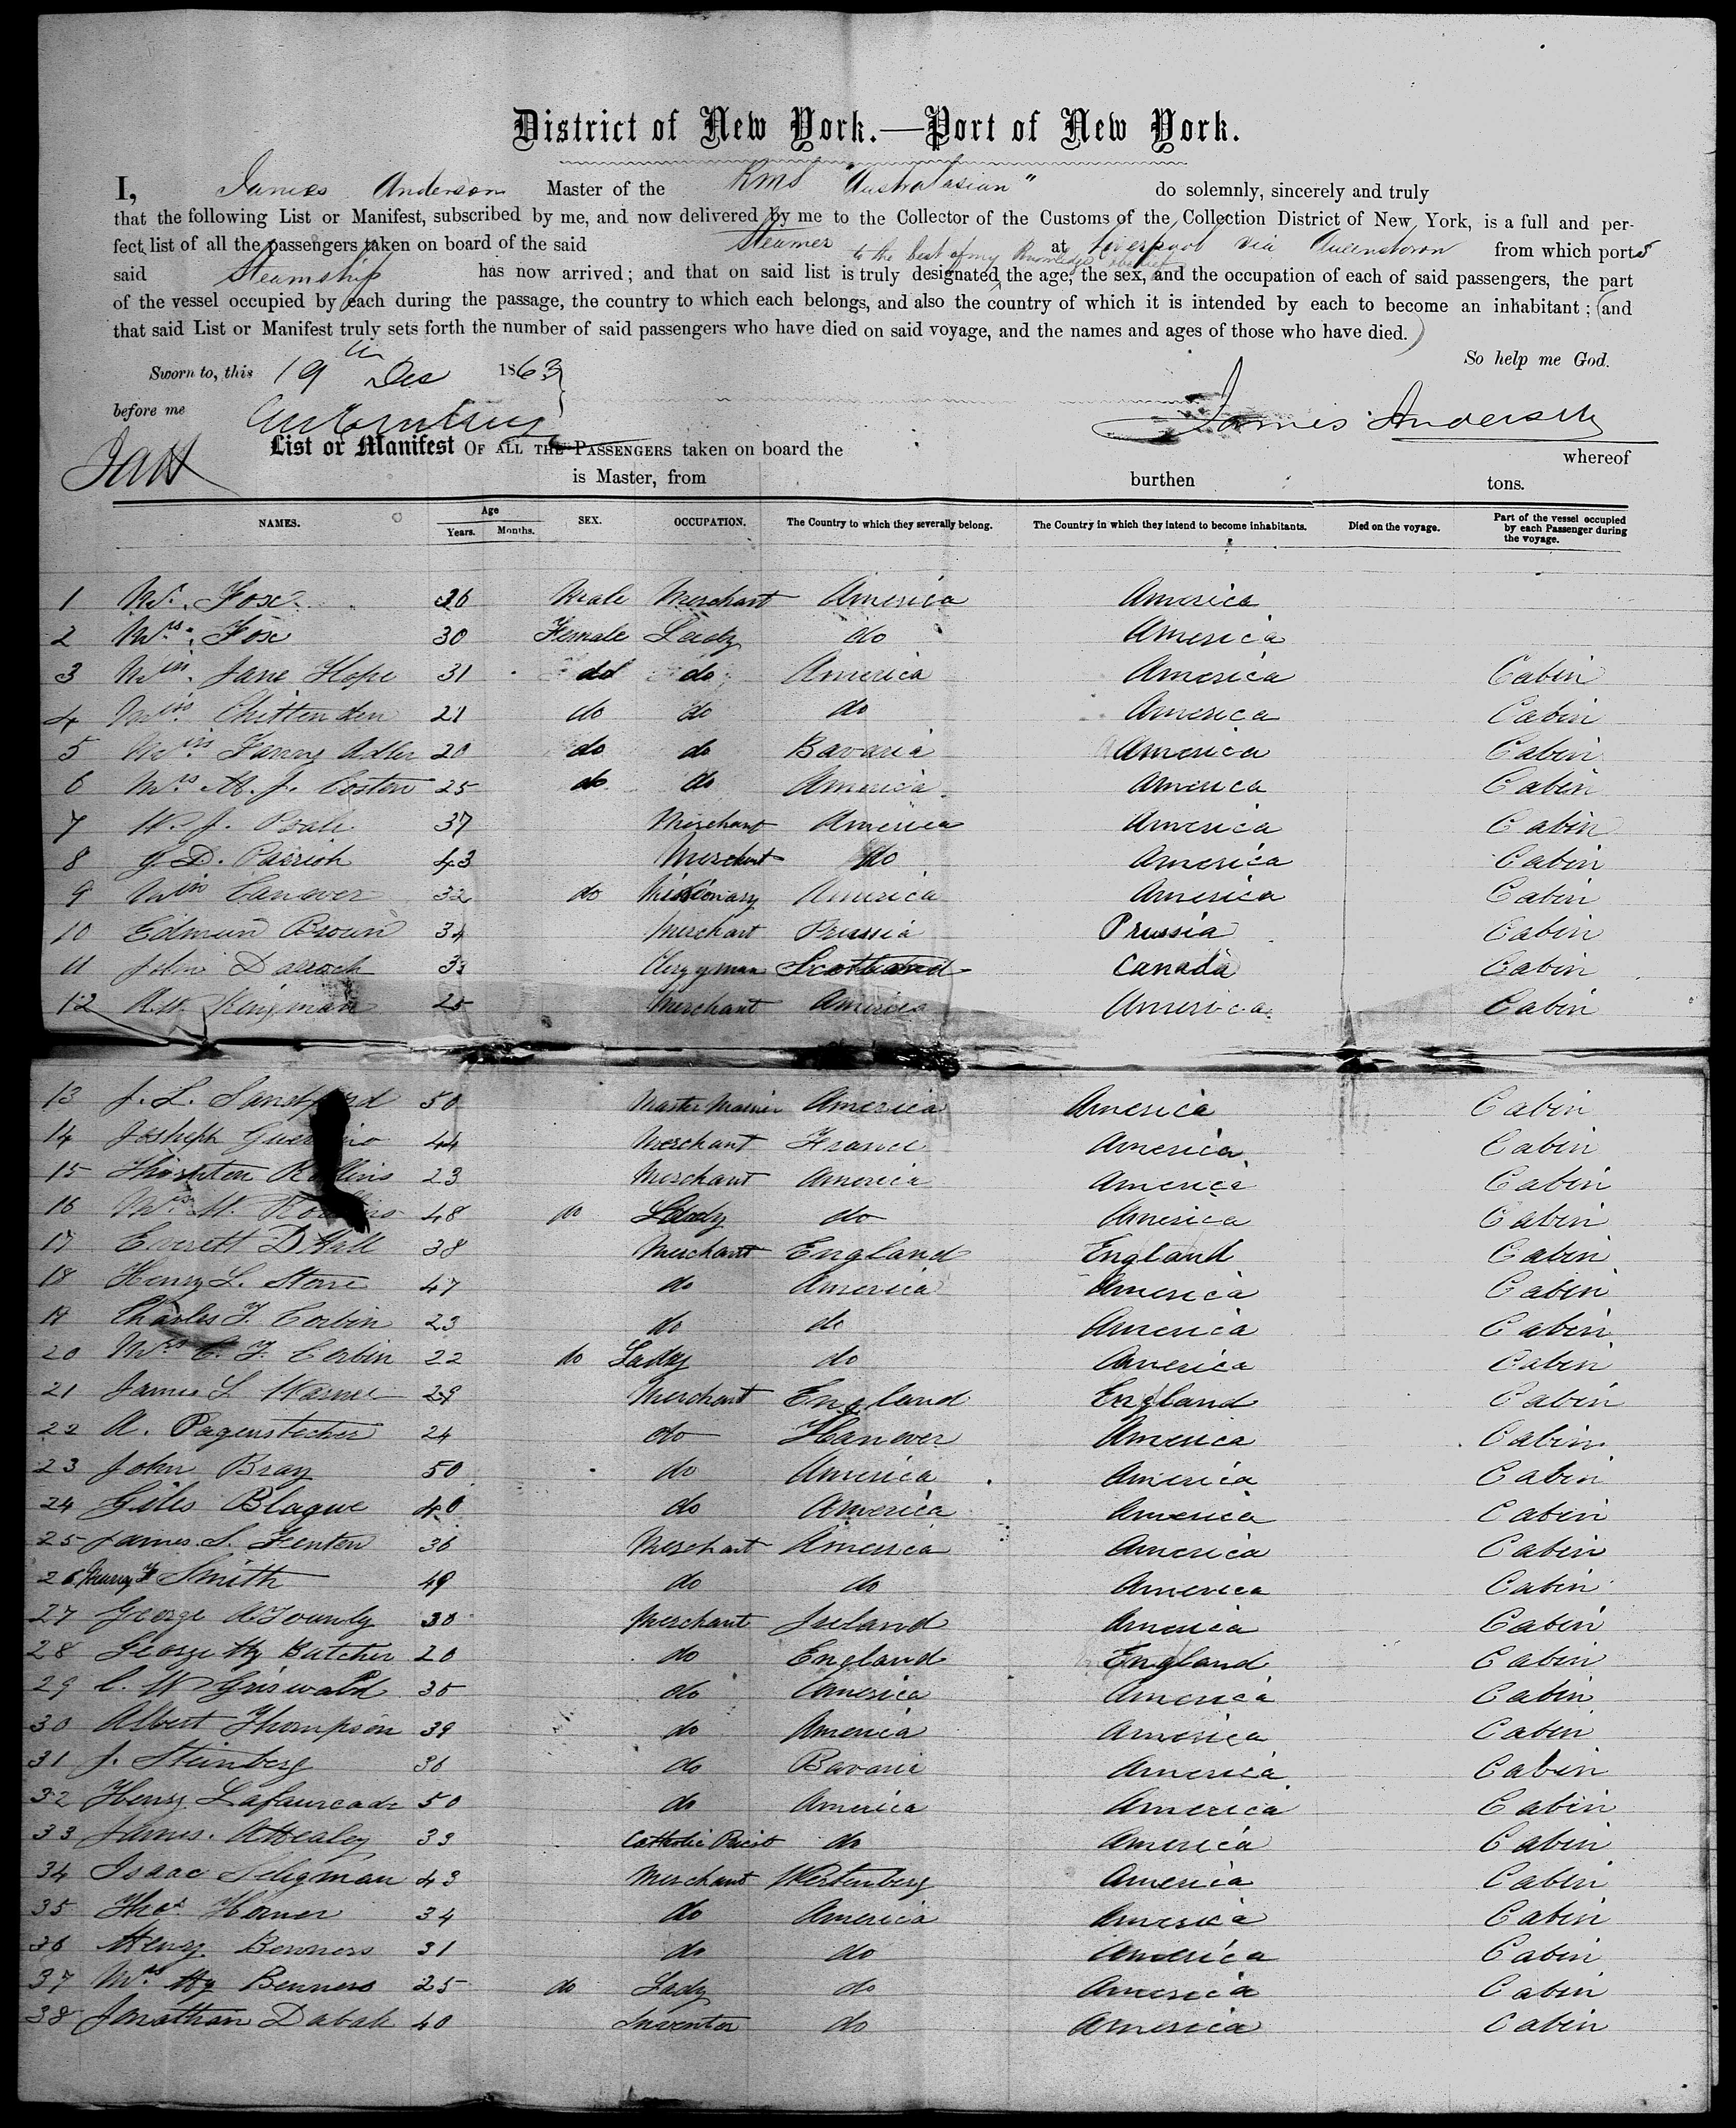 District of New York.—Port of New York.
I, James Anderson Master of the RMS "Australasian" do solemnly, sincerely and truly
that the following List or Manifest, subscribed by me, and now delivered by me to the Collector of the Customs of the Collection District of New York, is a full and per-
fect list of all the passengers taken on board of the said Steamer at Liverpool via Queenstown from which ports
to the best of my knowledge & belief
said Steamship has now arrived; and that on said list is truly designated the age, the sex, and the occupation of each of said passengers, the part
of the vessel occupied by each during the passage, the country to which each belongs, and also the country of which it is intended by each to become an inhabitant; (and
that said List or Manifest truly sets forth the number of said passengers who have died on said voyage, and the names and ages of those who have died.)
So help me God.
Sworn to, this 19th Dec 1863
before me
James Anderson
List or Manifest OF ALL THE PASSENGERS taken on board the whereof
is Master, from burthen tons.
NAMES. Age Years. Months. SEX. OCCUPATION. The Country to which they severally belong. The Country in which they intend to become inhabitants. Died on the voyage. Part of the vessel occupied by each Passenger during the voyage.
1 Mr. Fox 36 Male Merchant America America
2 Mrs. Fox 30 Female Lady do America
3 Miss. Jane Hope 31 do do America America Cabin
4 Miss Chittenden 21 do do do America Cabin
5 Miss Fanny Adler 20 do do Bavaria America Cabin
6 Mrs M. J. Costen 25 do do America America Cabin
7 37 Merchant America America Cabin
8 G. D. Parrish 43 Merchant do America Cabin
9 Miss Canover 32 do Missionary America America Cabin
10 Edmund Brown 34 Merchant Prussia Prussia Cabin
11 John Darroch 33 Clergyman Scotland Canada Cabin
12 Kingman 25 Merchant America America Cabin
13 J. L. Sandford 50 Master Mariner America America Cabin
14 Josheph 44 Merchant France America Cabin
15 Thornton Rollins 23 Merchant America America Cabin
16 Mrs M. Rollins 48 do Lady do America Cabin
17 Everett D Hall 38 Merchant England England Cabin
18 Henry L. Stone 47 do America America Cabin
19 Charles F. Corbin 23 do do America Cabin
20 Mrs C. F. Corbin 22 do Lady do America Cabin
21 James L Warner 29 Merchant England England Cabin
22 A. Pagenstecher 24 do Hanover America Cabin
23 John Bray 50 do America America Cabin
24 Giles Blague 40 do America America Cabin
25 James S. Fenton 36 Merchant America America Cabin
26 Smith 49 do do America Cabin
27 George A Townly 30 Merchant Ireland America Cabin
28 George Hy Butcher 20 do England England Cabin
29 C. W Griswald 35 do America America Cabin
30 Albert Thompson 39 do America America Cabin
31 J. Steinberg 36 do Bavaria America Cabin
32 Henry Lafaurcade 50 do America America Cabin
33 James. A Healey 33 Catholic Priest do America Cabin
34 Isaac Seligman 43 Merchant Wertenberg America Cabin
35 Thos Horner 34 do America America Cabin
36 Henry Benners 31 do do America Cabin
37 Mrs Hy Benners 25 do Lady do America Cabin
38 Jonathan Dabak 40 Inventor do America Cabin